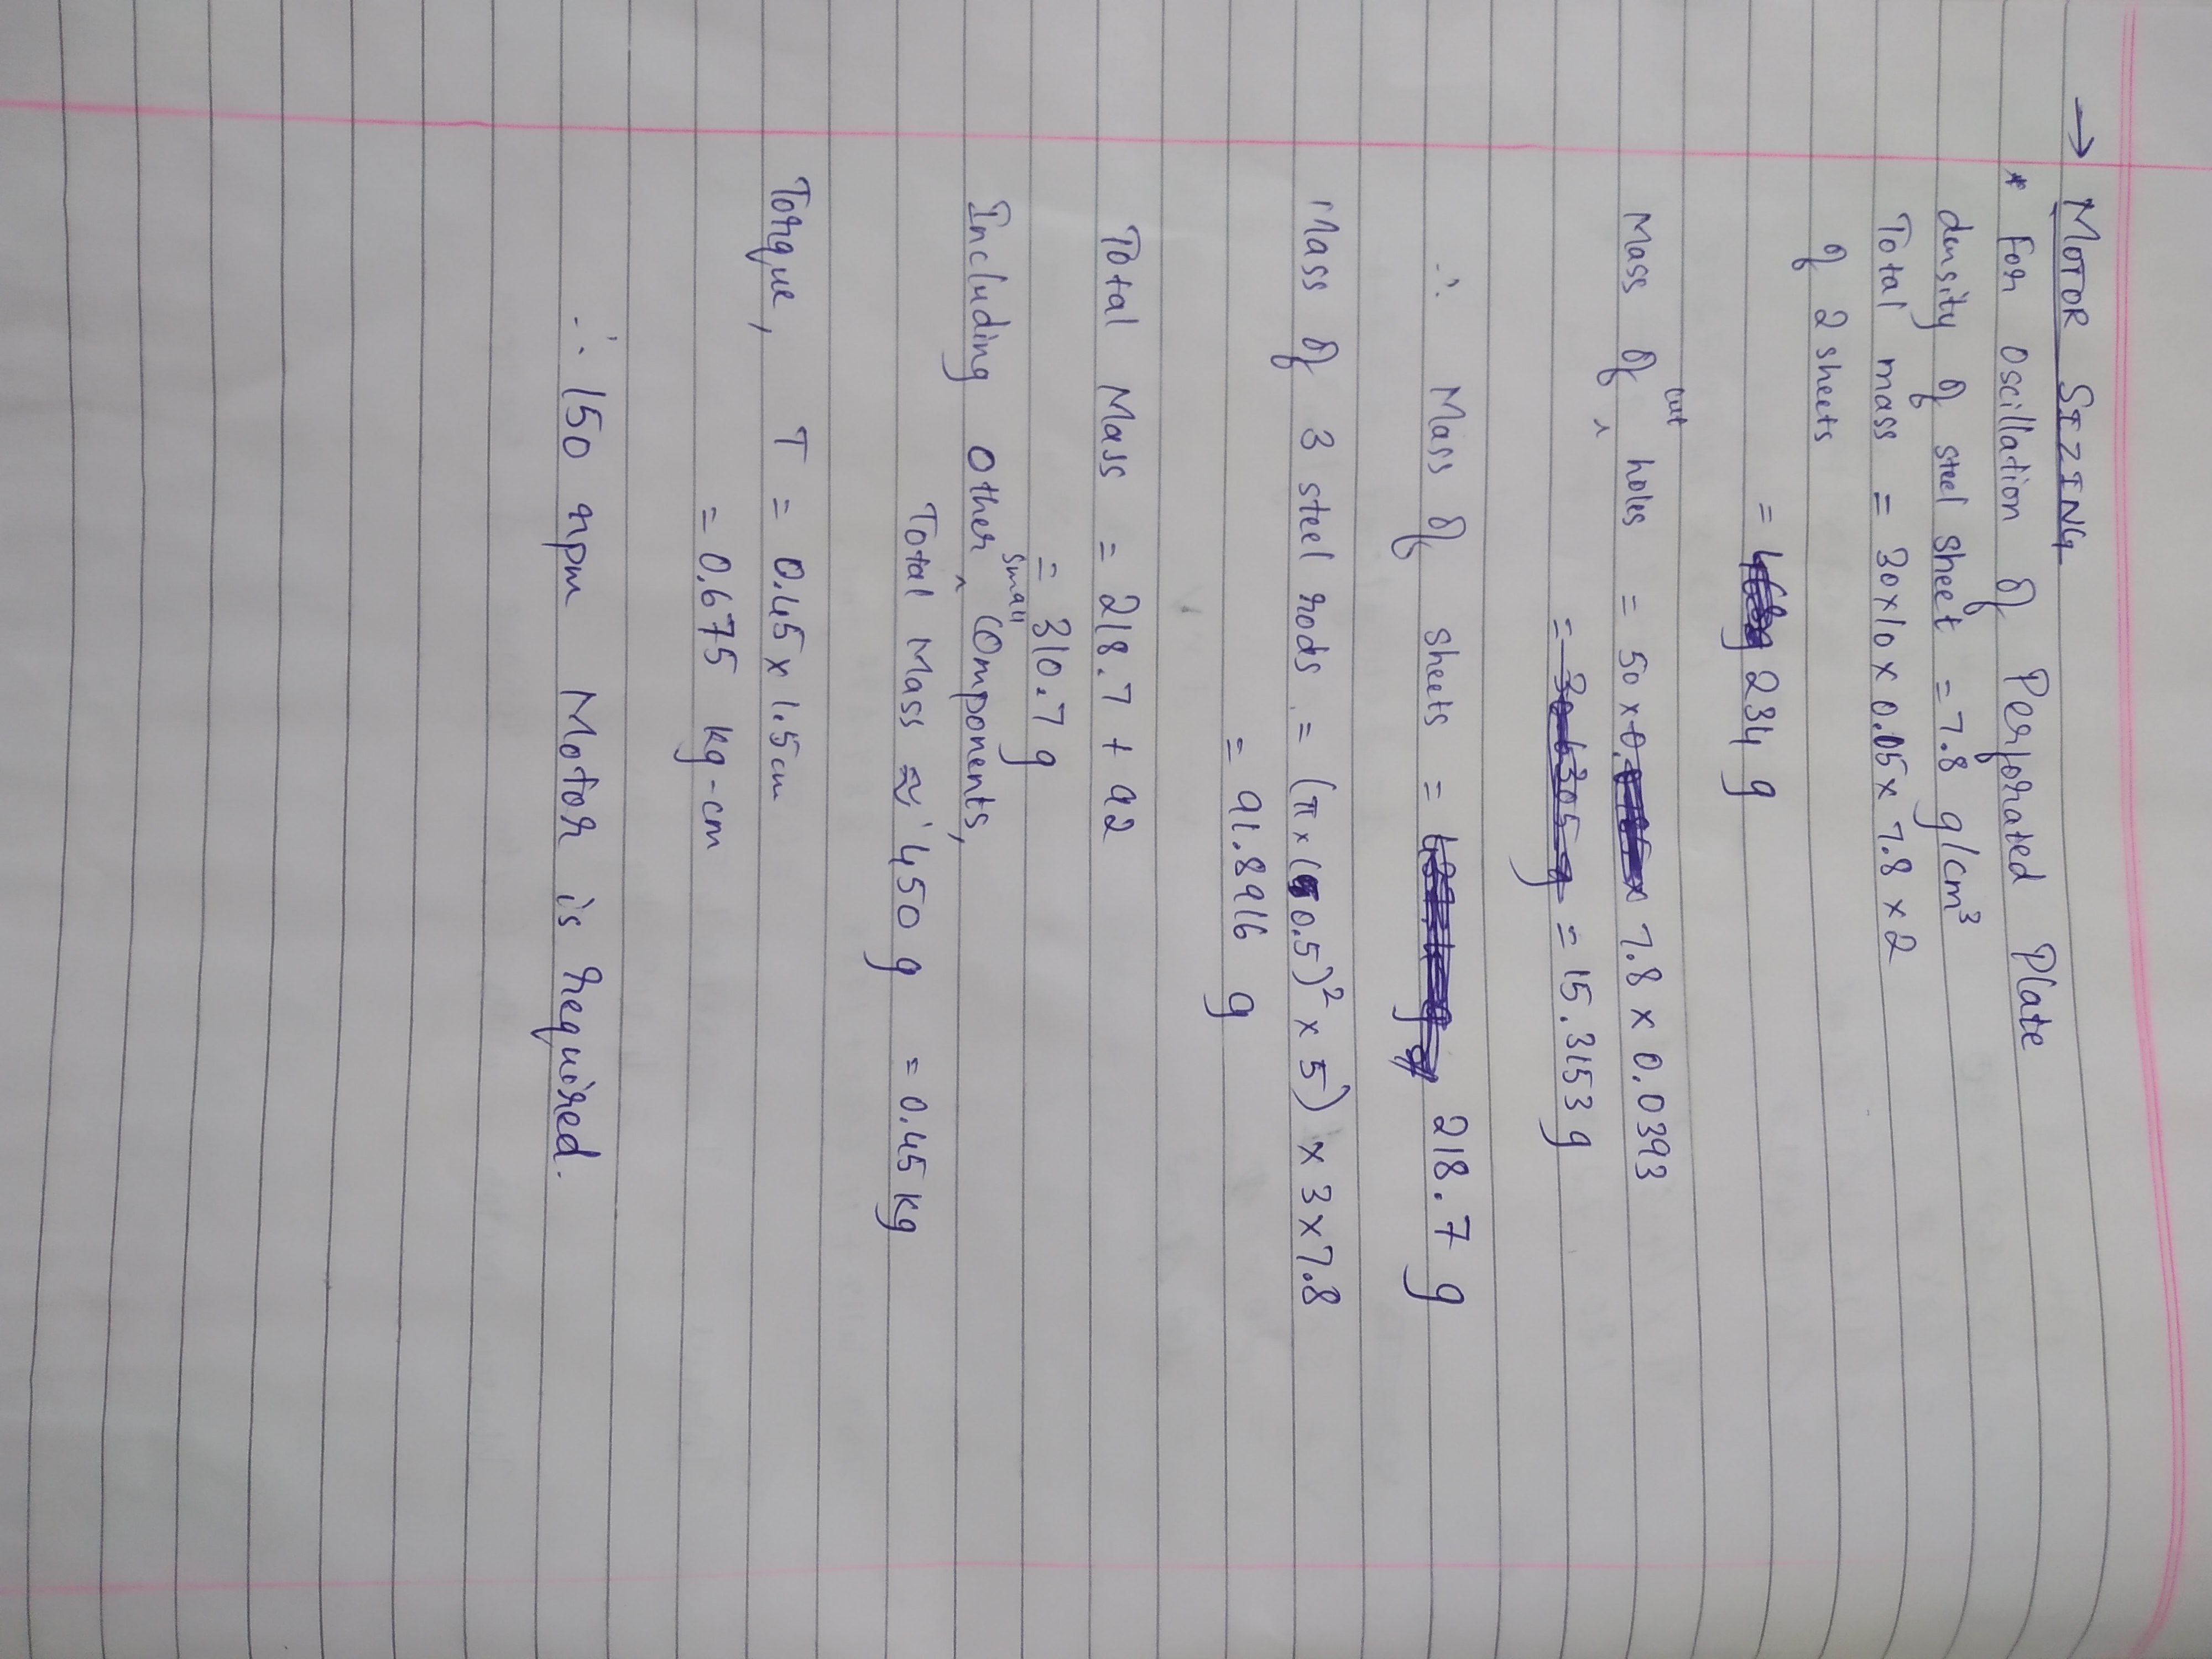 → MOTOR SIZING
* For Oscillation of Perforated Plate
density of steel sheet = 7.8 g/cm³
Total mass = 30x10 x 0.05 x 7.8 x 2
of 2 sheets
= 234 g
Mass of cut holes = 50 x 7.8 x 0.0393
= 15.3153 g
∴ Mass of sheets = 218.7 g
Mass of 3 steel rods = (π x (0.5)² x 5) x 3 x 7.8
= 91.8916 g
Total Mass = 218.7 + 92
= 310.7 g
Including Other small components,
Total Mass ≈ 450 g = 0.45 kg
Torque, T = 0.45 x 1.5cm
= 0.675 kg-cm
∴ 150 rpm Motor is required.